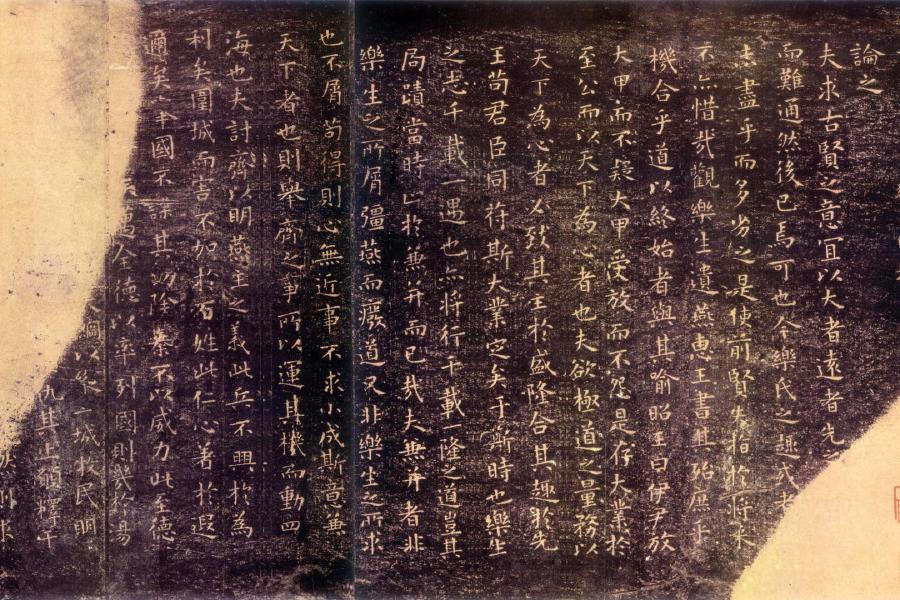 論之
夫求古賢之意宜以大者遠者先
而難通然後已焉可也今樂氏之趣或者
盡乎而多劣之是使前賢失指於將來
不亦惜哉觀樂生遺燕惠王書其殆庶乎
機合乎道以終始者與其喻昭王曰伊尹放
大甲而不疑大甲受放而不怨是存大業於
至公而以天下為心者也夫欲極道之量務以
天下為心者必致其主於盛隆合其趣於先
王苟君臣同符斯大業定矣于斯時也樂生
之志千載一遇也亦將行千載一隆之道豈其
局蹟當時止於兼并而已哉夫兼并者非
樂生之所屑彊燕而廢道又非樂生之所求
也不屑苟得則心無近事不求小成斯意兼
天下者也則舉齊之事所以運其機而動四
海也夫討齊以明燕主之義此兵不興於為
利矣圍城而害不加於百姓此仁心著於遐
邇矣舉國不謀其功除暴不以威力此至德
全德以率列國則幾於湯
綱以縱二城牧民明